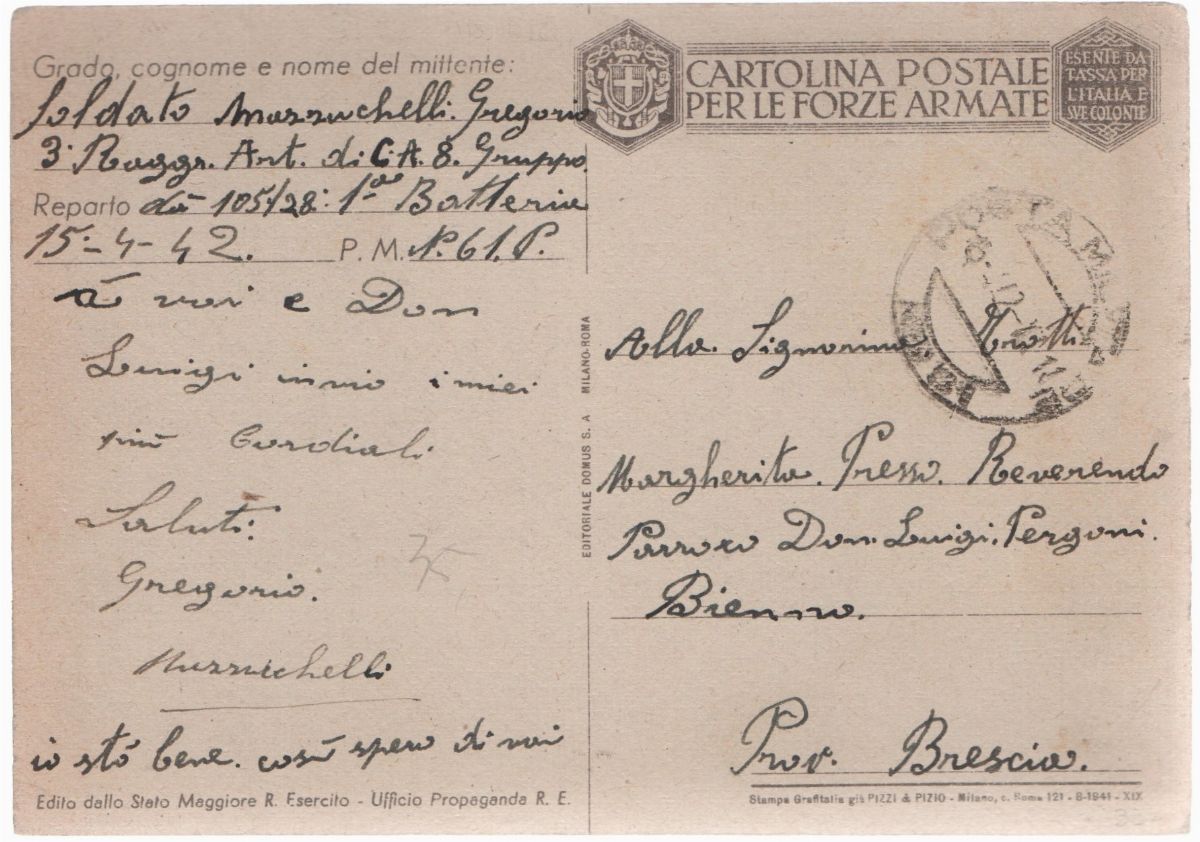 Grado, cognome e nome del mittente:
Soldato Mazzuchelli Gregorio
3° Raggr. Art. di C.A. 8. Gruppo.
Reparto da 105/28: 1ª Batteria
15-4-42. P. M. N°. 61. P.
à voi e Don
Luigi invio i miei
più Cordiali
Saluti:
Gregorio.
Mazzuchelli
io stò bene. così spero di voi
Edito dallo Stato Maggiore R. Esercito - Ufficio Propaganda R. E.
EDITORIALE DOMUS S. A MILANO-ROMA
CARTOLINA POSTALE
PER LE FORZE ARMATE
ESENTE DA
TASSA PER
L'ITALIA E
SVE COLONIE
POSTA MIL
Alla. Signorina Trotti
Margherita. Presso. Reverendo
Parroco Don. Luigi. Pergoni.
Bienno.
Prov. Brescia.
Stampa Grafitalia già PIZZI & PIZIO - Milano, c. Roma 121 - 8-1941 - XIX